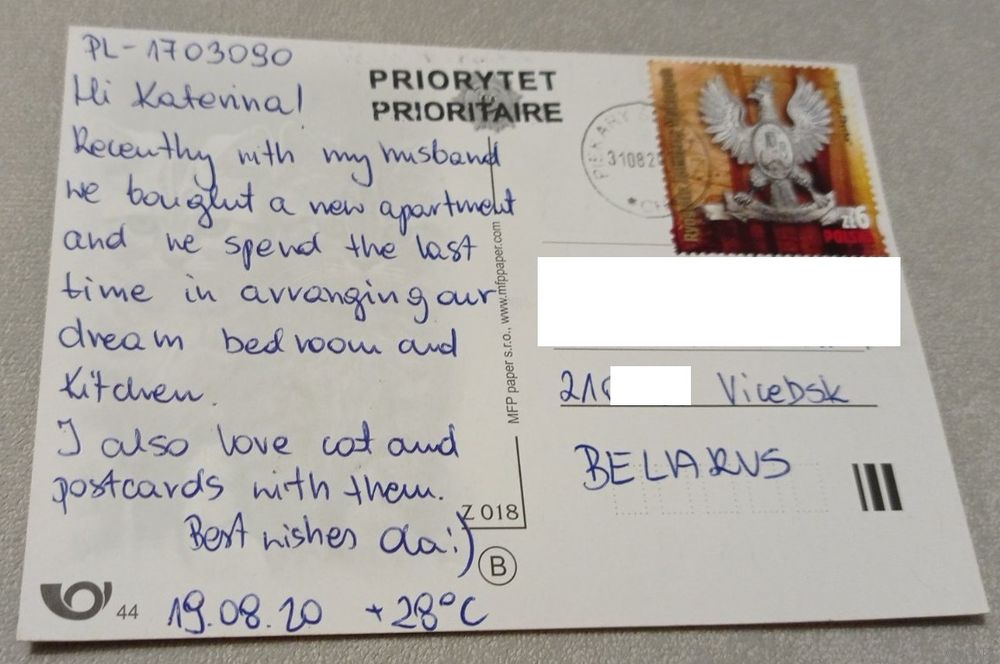 PL-1703090
Hi Katerina!
Recenthy with my husband
we bought a new apartment
and we spend the last
time in arranging our
dream bedroom and
kitchen.
I also love cat and
postcards with them.
Best wishes Ola:)
19.08.20 +28°C
44
PRIORYTET
PRIORITAIRE
MFP paper s.r.o., www.mfppaper.com
Z 018
B
310820
zł6
POLSKA
Vicebsk
BELARUS